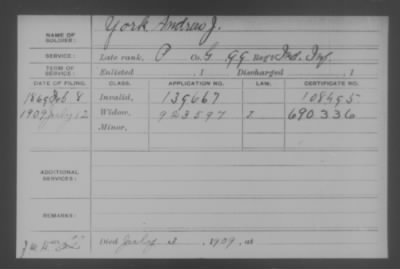 NAME OF SOLDIER: York Andrew J.
SERVICE: Late rank, P Co. G 99 Reg't Ind. Inf.
TERM OF SERVICE: Enlisted , 1 Discharged , 1
DATE OF FILING. CLASS. APPLICATION NO. LAW. CERTIFICATE NO.
1869 Feb 8 Invalid, 139667 108495
1909 July 12 Widow, 923597 690336
Minor,
ADDITIONAL SERVICES:
REMARKS:
Died July , 1909, at